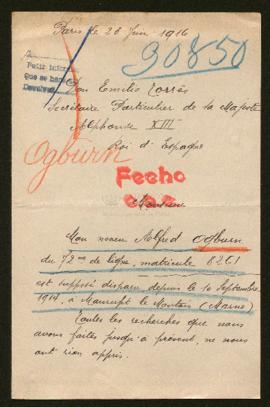 Paris le 28 Juin 1916
90850
Petit
Que se han
Don Emilio Torrès
Secrétaire Particulier de la Majesté
Alphonse XIII
Roi d'Espagne
Ogburn
Fecho
Monsieur
Mon neveu Alfred Ogburn
du 72me de ligne, matricule 8261
est supposé disparu depuis le 10 Septembre
1914, à Maurupt le Montois (Marne)
Toutes les recherches que nous
avons faites jusqu'à présent, ne nous
ont rien appris.